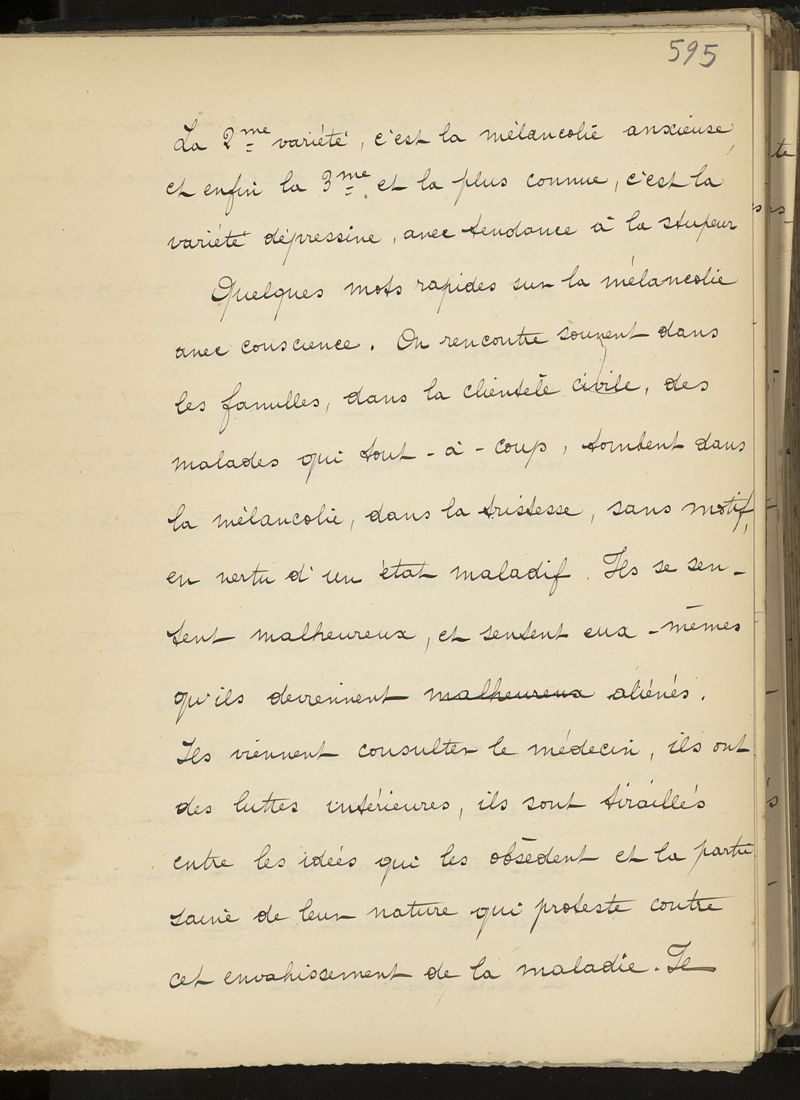 595
La 2me variété, c'est la mélancolie anxieuse,
et enfin la 3me et la plus connue, c'est la
variété dépressive, avec tendance à la stupeur
Quelques mots rapides sur la mélancolie
avec conscience. On rencontre souvent dans
les familles, dans la clientèle civile, des
malades qui tout-à-coup, tombent dans
la mélancolie, dans la tristesse, sans motif,
en vertu d'un état maladif. Ils se sen-
tent malheureux, et sentent eux-mêmes
qu'ils deviennent malheureux aliénés.
Ils viennent consulter le médecin, ils ont
des luttes intérieures, ils sont tiraillés
entre les idées qui les obsèdent et la partie
saine de leur nature qui proteste contre
cet envahissement de la maladie. Je